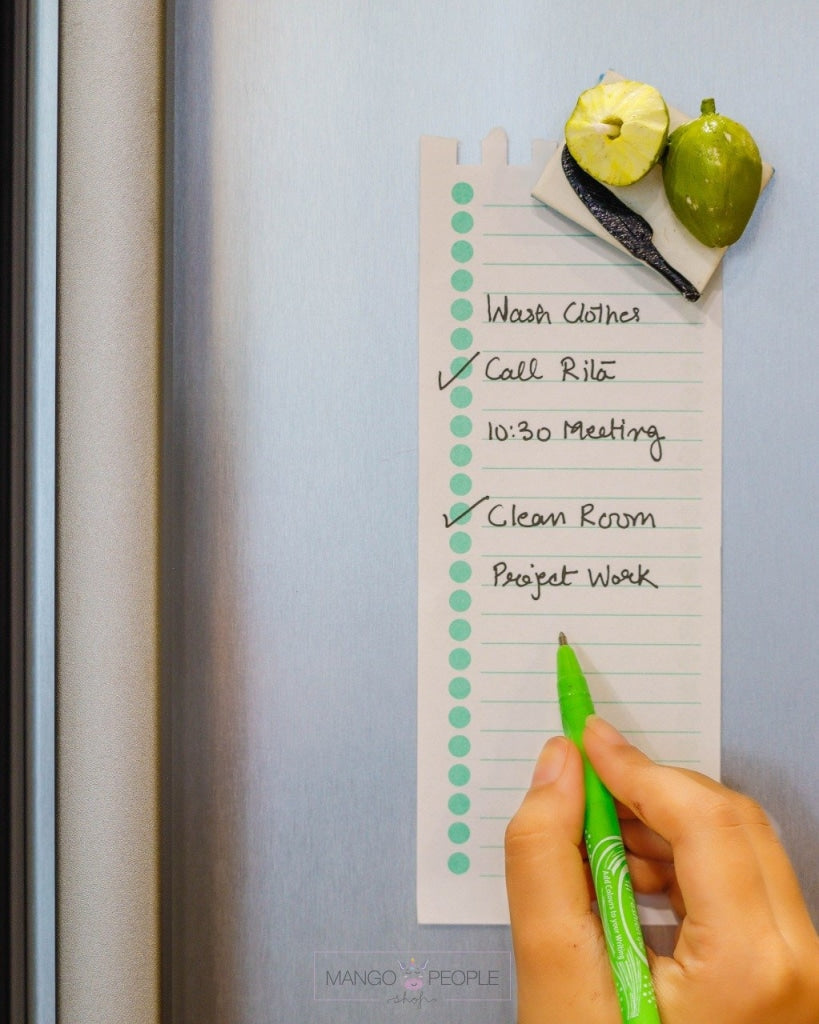 Wash Clothes
Call Rita
10:30 Meeting
Clean Room
Project Work
Add Colours to your Writing
MANGO PEOPLE
shop